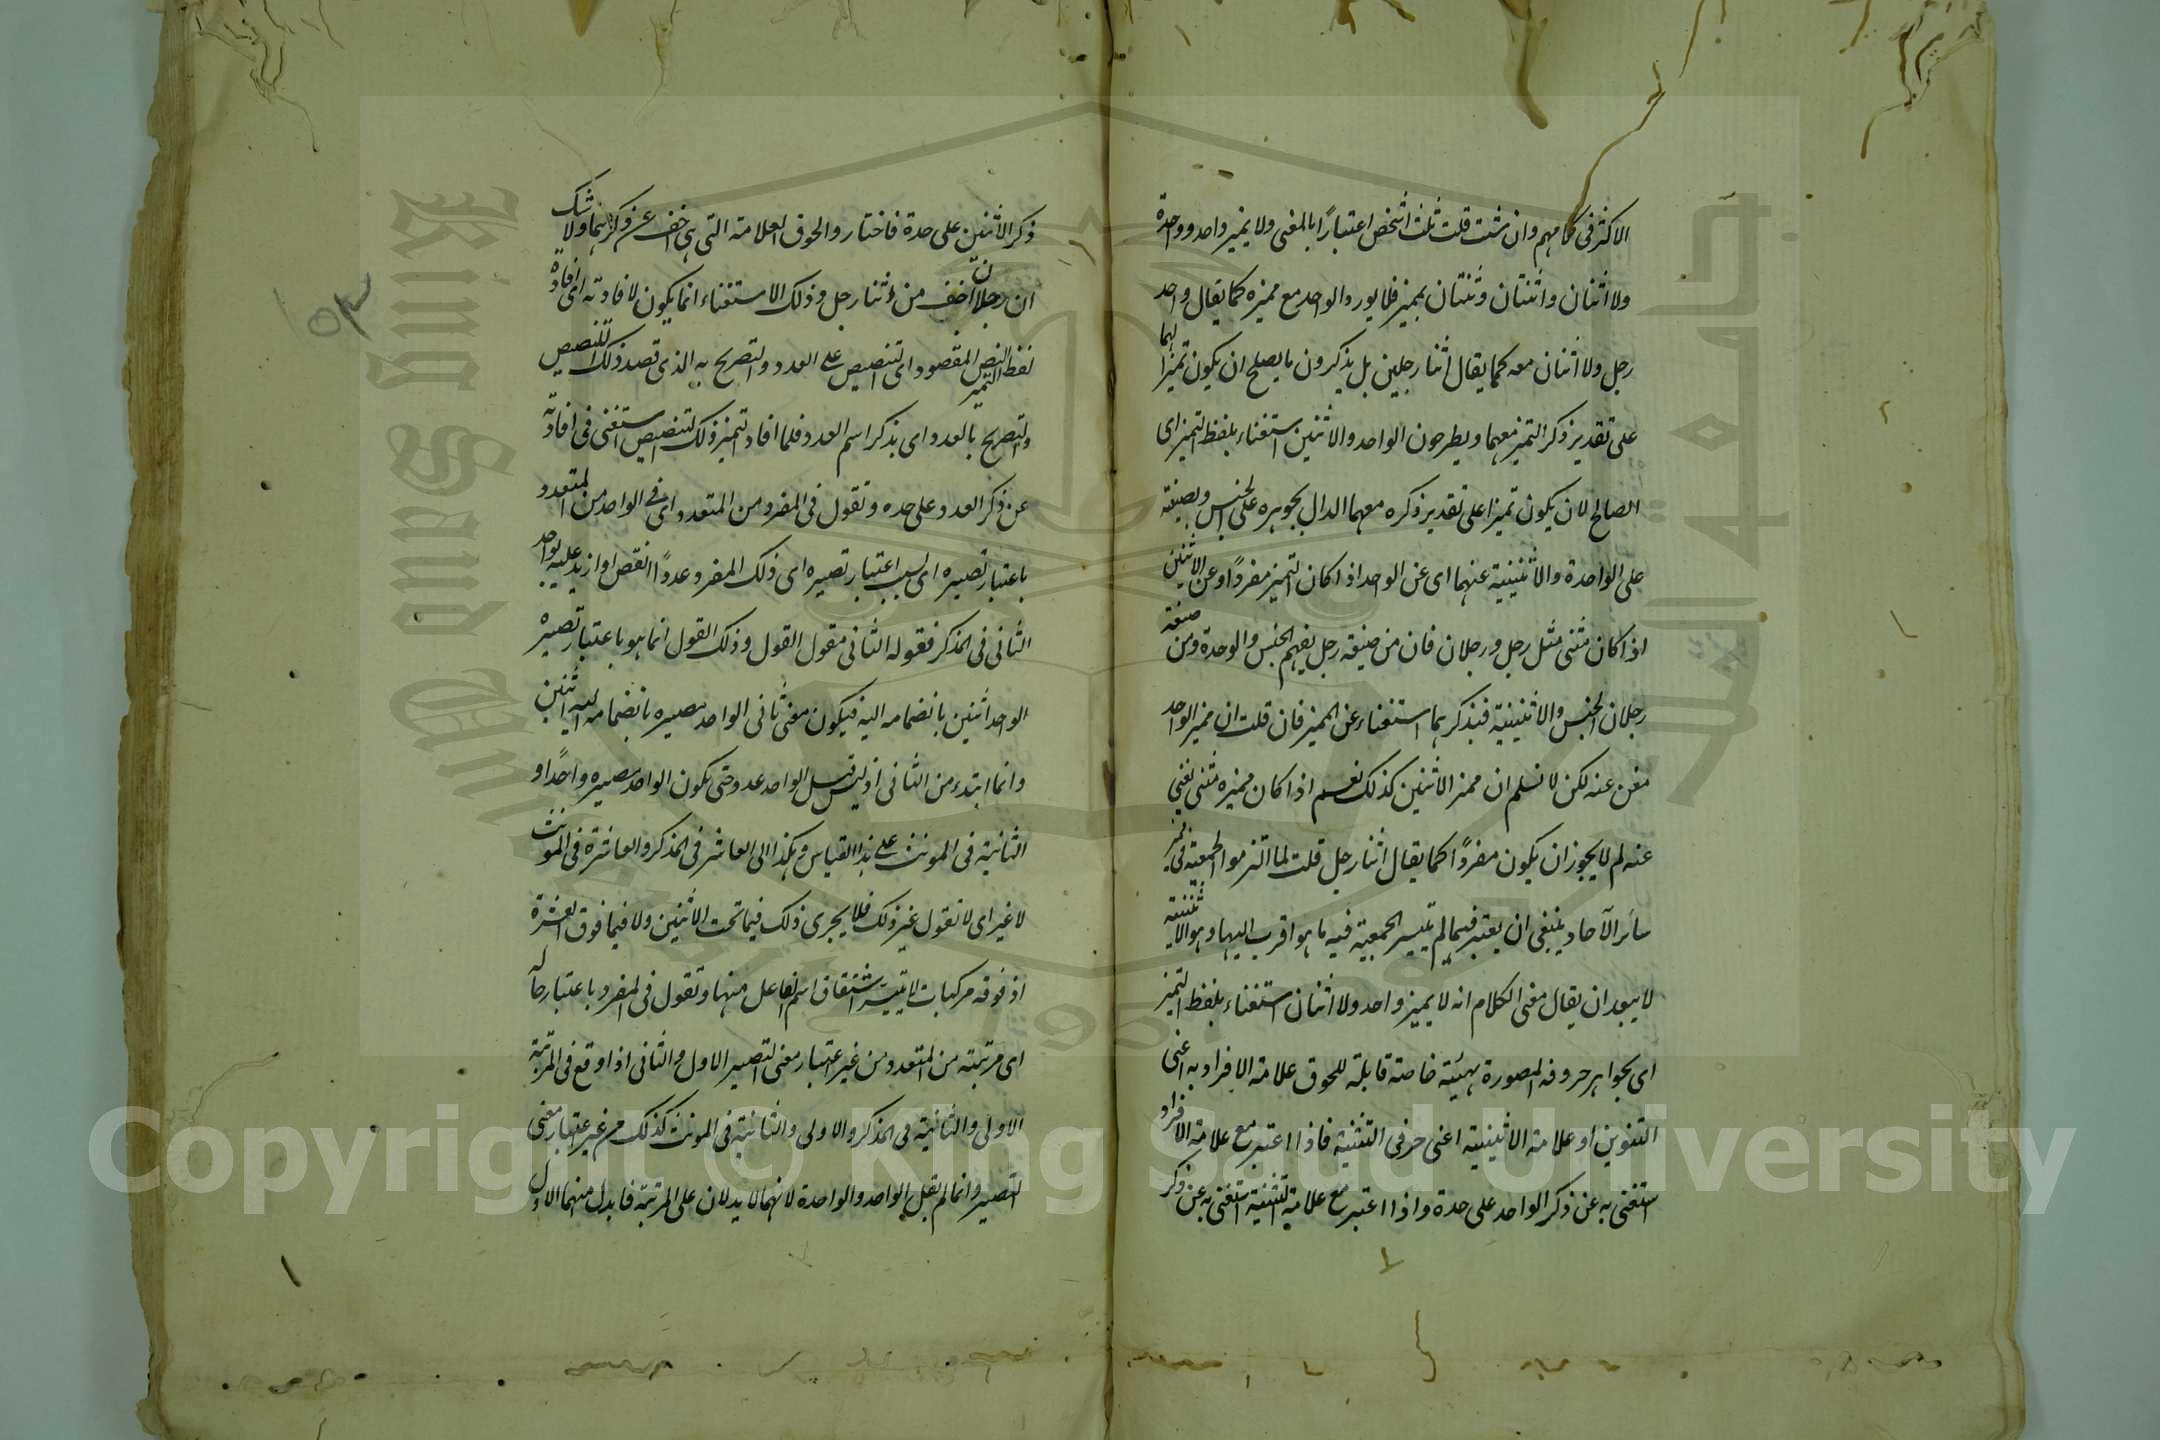 الاكثر فى كلامهم وان شئت قلت ثلث اشخص اعتبارًا بالمعنى ولا يميز واحد وواحدة
ولا اثنان واثنتان وثنتان بمميز فلا يورد الواحد مع مميزه كما يقال واحد
رجل ولا اثنان معه كما يقال اثنا رجلين بل يذكرون ما يصلح ان يكون تميزا لهما
على تقدير ذكر التميز معهما ويطرحون الواحد والاثنين استغناء بلفظ التميز اى
الصالح لان يكون تميزا على تقدير ذكره معهما الدال بجوهره على الجنس وبصيغته
على الواحدة والاثنينية عنهما اى عن الوحد اذا كان التميز مفردًا وعن الاثنين
اذا كان مثنى مثل رجل ورجلان فان من صيغة رجل يفهم الجنس والوحدة ومن صيغة
رجلان الجنس والاثنينية فبذكرهما استغناء عن المميز فان قلت ان مميز الواحد
مغن عنه لكن لا نسلم ان مميز الاثنين كذلك نعم اذا كان مميزه مثنى يغنى
عنه لم لا يجوز ان يكون مفردًا كما يقال اثنا رجل قلت لما التزموا الجمعية فى مميز
سائر الآحاد ينبغى ان يعتبر فيما لم يتيسر الجمعية فيه ما هو اقرب اليها وهو الاثنينية
لا يبعد ان يقال معنى الكلام انه لا يميز واحد ولا اثنان استغناء بلفظ التميز
اى بجواهر حروفه المصورة بهيئة خاصة قابلة للحوق علامة الافراد به اعنى
التنوين او علامة الاثنينية اعنى حرفى التثنية فاذا اعتبر مع علامة الافراد
استغنى به عن ذكر الواحد على حدة واذا اعتبر مع علامة التثنية استغنى به عن ذكر
ذكر الاثنين على حدة فاختاروا لحوق العلامة التى هى اخف عن ذكرهما ولا شك
ان رجلان اخف من اثنا رجل وذلك الاستغناء انما يكون لافادته اى افادة
لفظ التميز النص المقصود اى التنصيص على العدد والتصريح به الذى قصد ذلك التنصيص
والتصريح بالعدد اى بذكر اسم العدد فلما افاد التميز ذلك التنصيص استغنى فى افادته
عن ذكر العدد على حده وتقول فى المفرد من المتعدد اى فى الواحد من المتعدد
باعتبار تصييره اى بسبب اعتبار تصييره اى ذلك المفرد عددًا انقص او ازيد عليه بواحد
الثانى فى المذكر فقوله الثانى مقول القول وذلك القول انما هو باعتبار تصييره
الواحد اثنين بانضمامه اليه فيكون معنى ثانى الواحد مصيره بانضمامه اليه اثنين
وانما ابتدء من الثانى اذ ليس قبل الواحد عدد حتى يكون الواحد مصيره واحدًا و
الثانية فى المونث على هذا القياس وهكذا الى العاشر فى المذكر والعاشرة فى المونث
لا غير اى لا تقول غير ذلك فلا يجرى ذلك فيما تحت الاثنين ولا فيما فوق العشرة
اذ فوقه مركبات لا يتيسر اشتقاق اسم الفاعل منها وتقول فى المفرد باعتبار حاله
اى مرتبته من المتعدد من غير اعتبار معنى التصيير الاول والثانى اذا وقع فى المرتبة
الاولى والثانية فى المذكر والاولى والثانية فى المونث كذلك من غير اعتبار معنى
التصيير وانما لم يقل الواحد والواحدة لانهما لا يدلان على المرتبة فابدل منهما الاول
١٥٣
Copyright © King Saud University